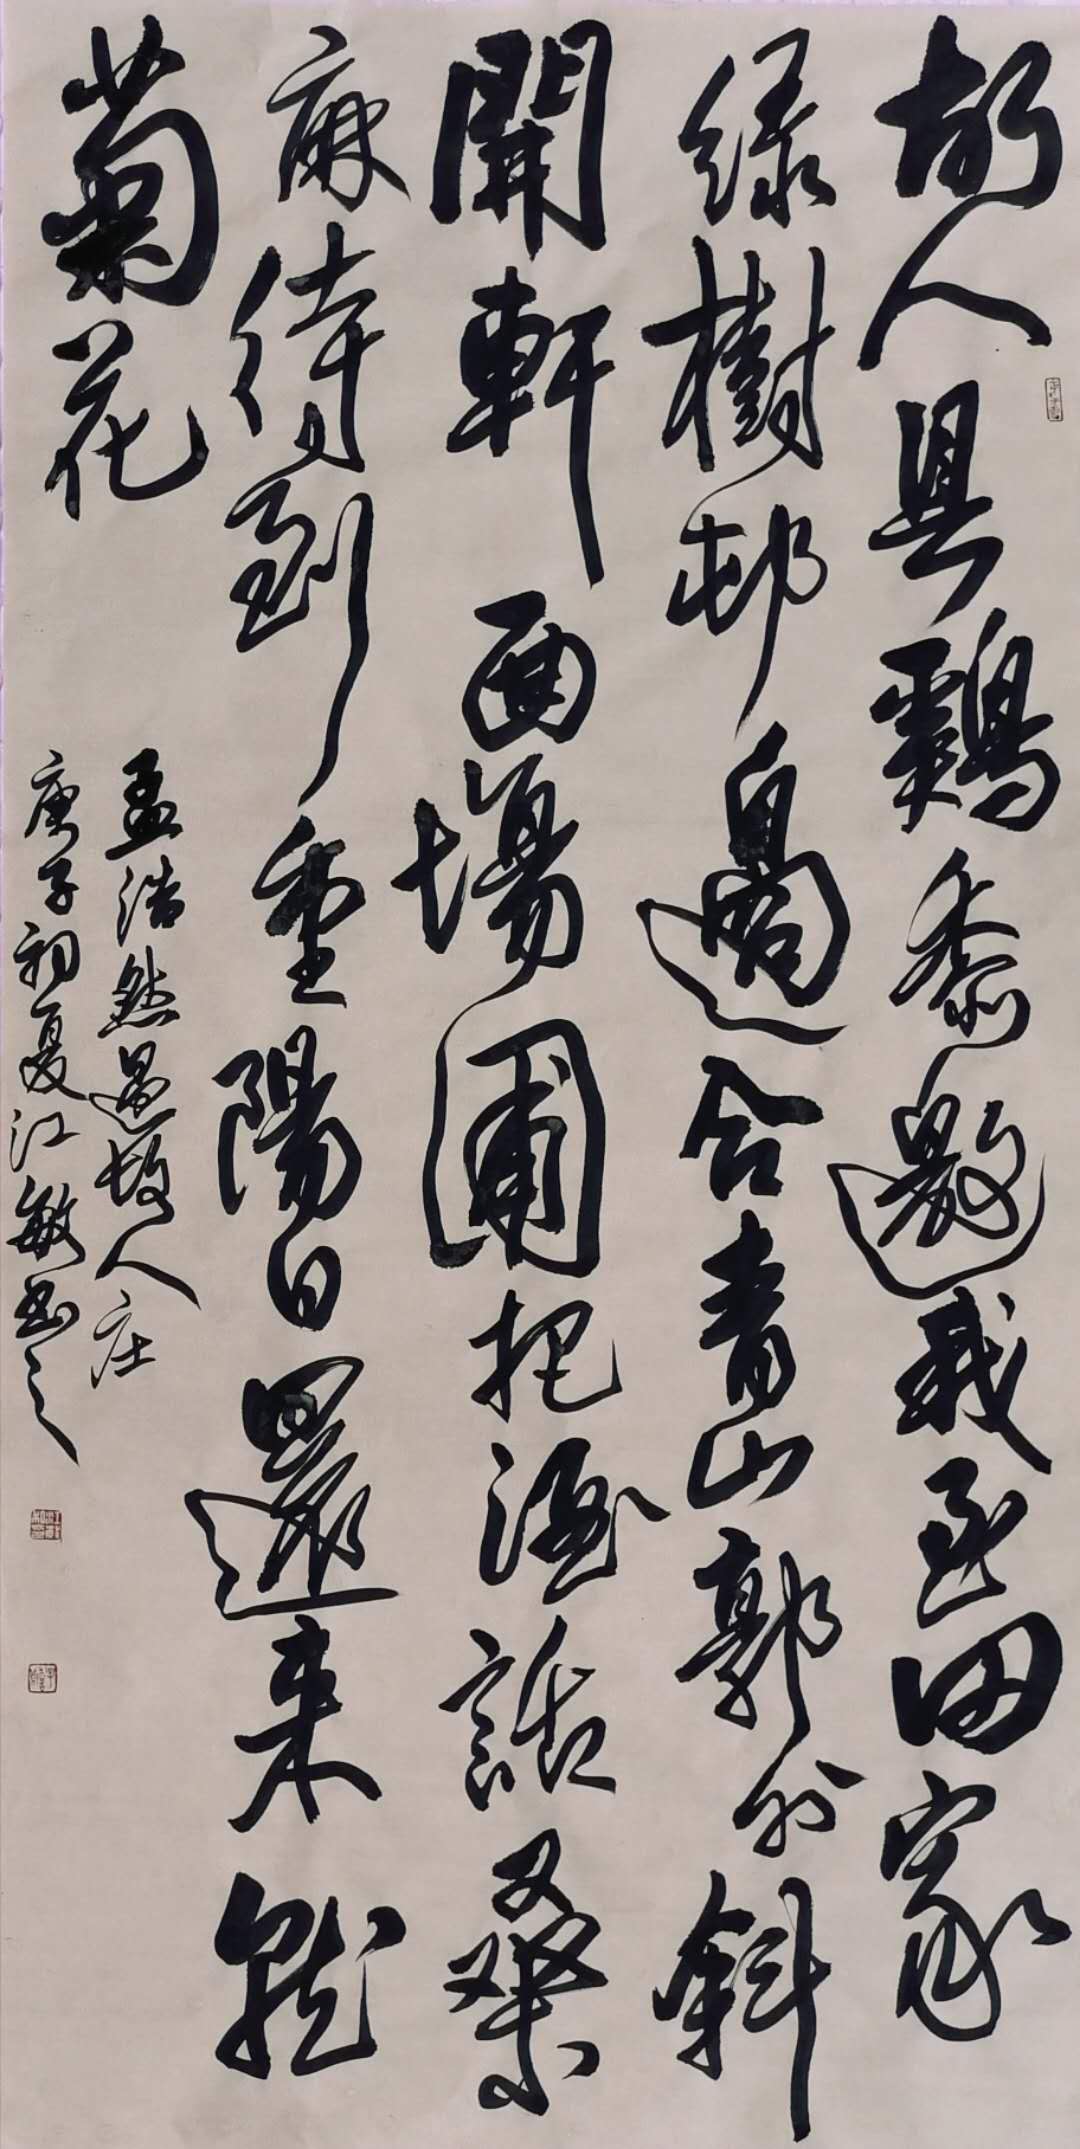 故人具鷄黍邀我至田家
绿樹邨邊合青山郭外斜
開軒面場圃把酒話桑
麻待到重陽日還来就
菊花
孟浩然過故人庄
庚子初夏江敏书之